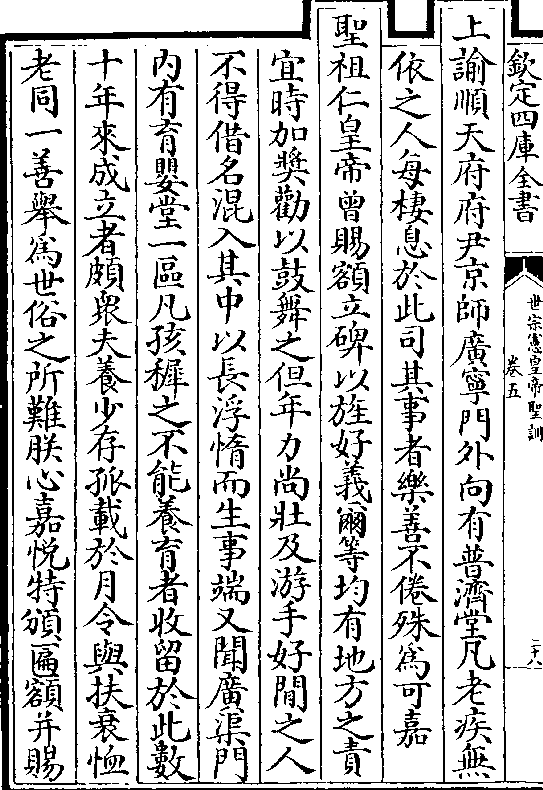 欽定四庫全書
世宗憲皇帝聖訓
卷五
二十八
上諭順天府府尹京師廣寧門外向有普濟堂凡老疾無
依之人每棲息於此司其事者樂善不倦殊為可嘉
聖祖仁皇帝曾賜額立碑以旌好義爾等均有地方之責
宜時加獎勸以鼓舞之但年力尚壯及游手好閒之人
不得借名混入其中以長浮惰而生事端又聞廣渠門
內有育嬰堂一區凡孩穉之不能養育者收留於此數
十年來成立者頗衆夫養少存孤載於月令與扶衰恤
老同一善舉為世俗之所難朕心嘉悅特頒匾額并賜